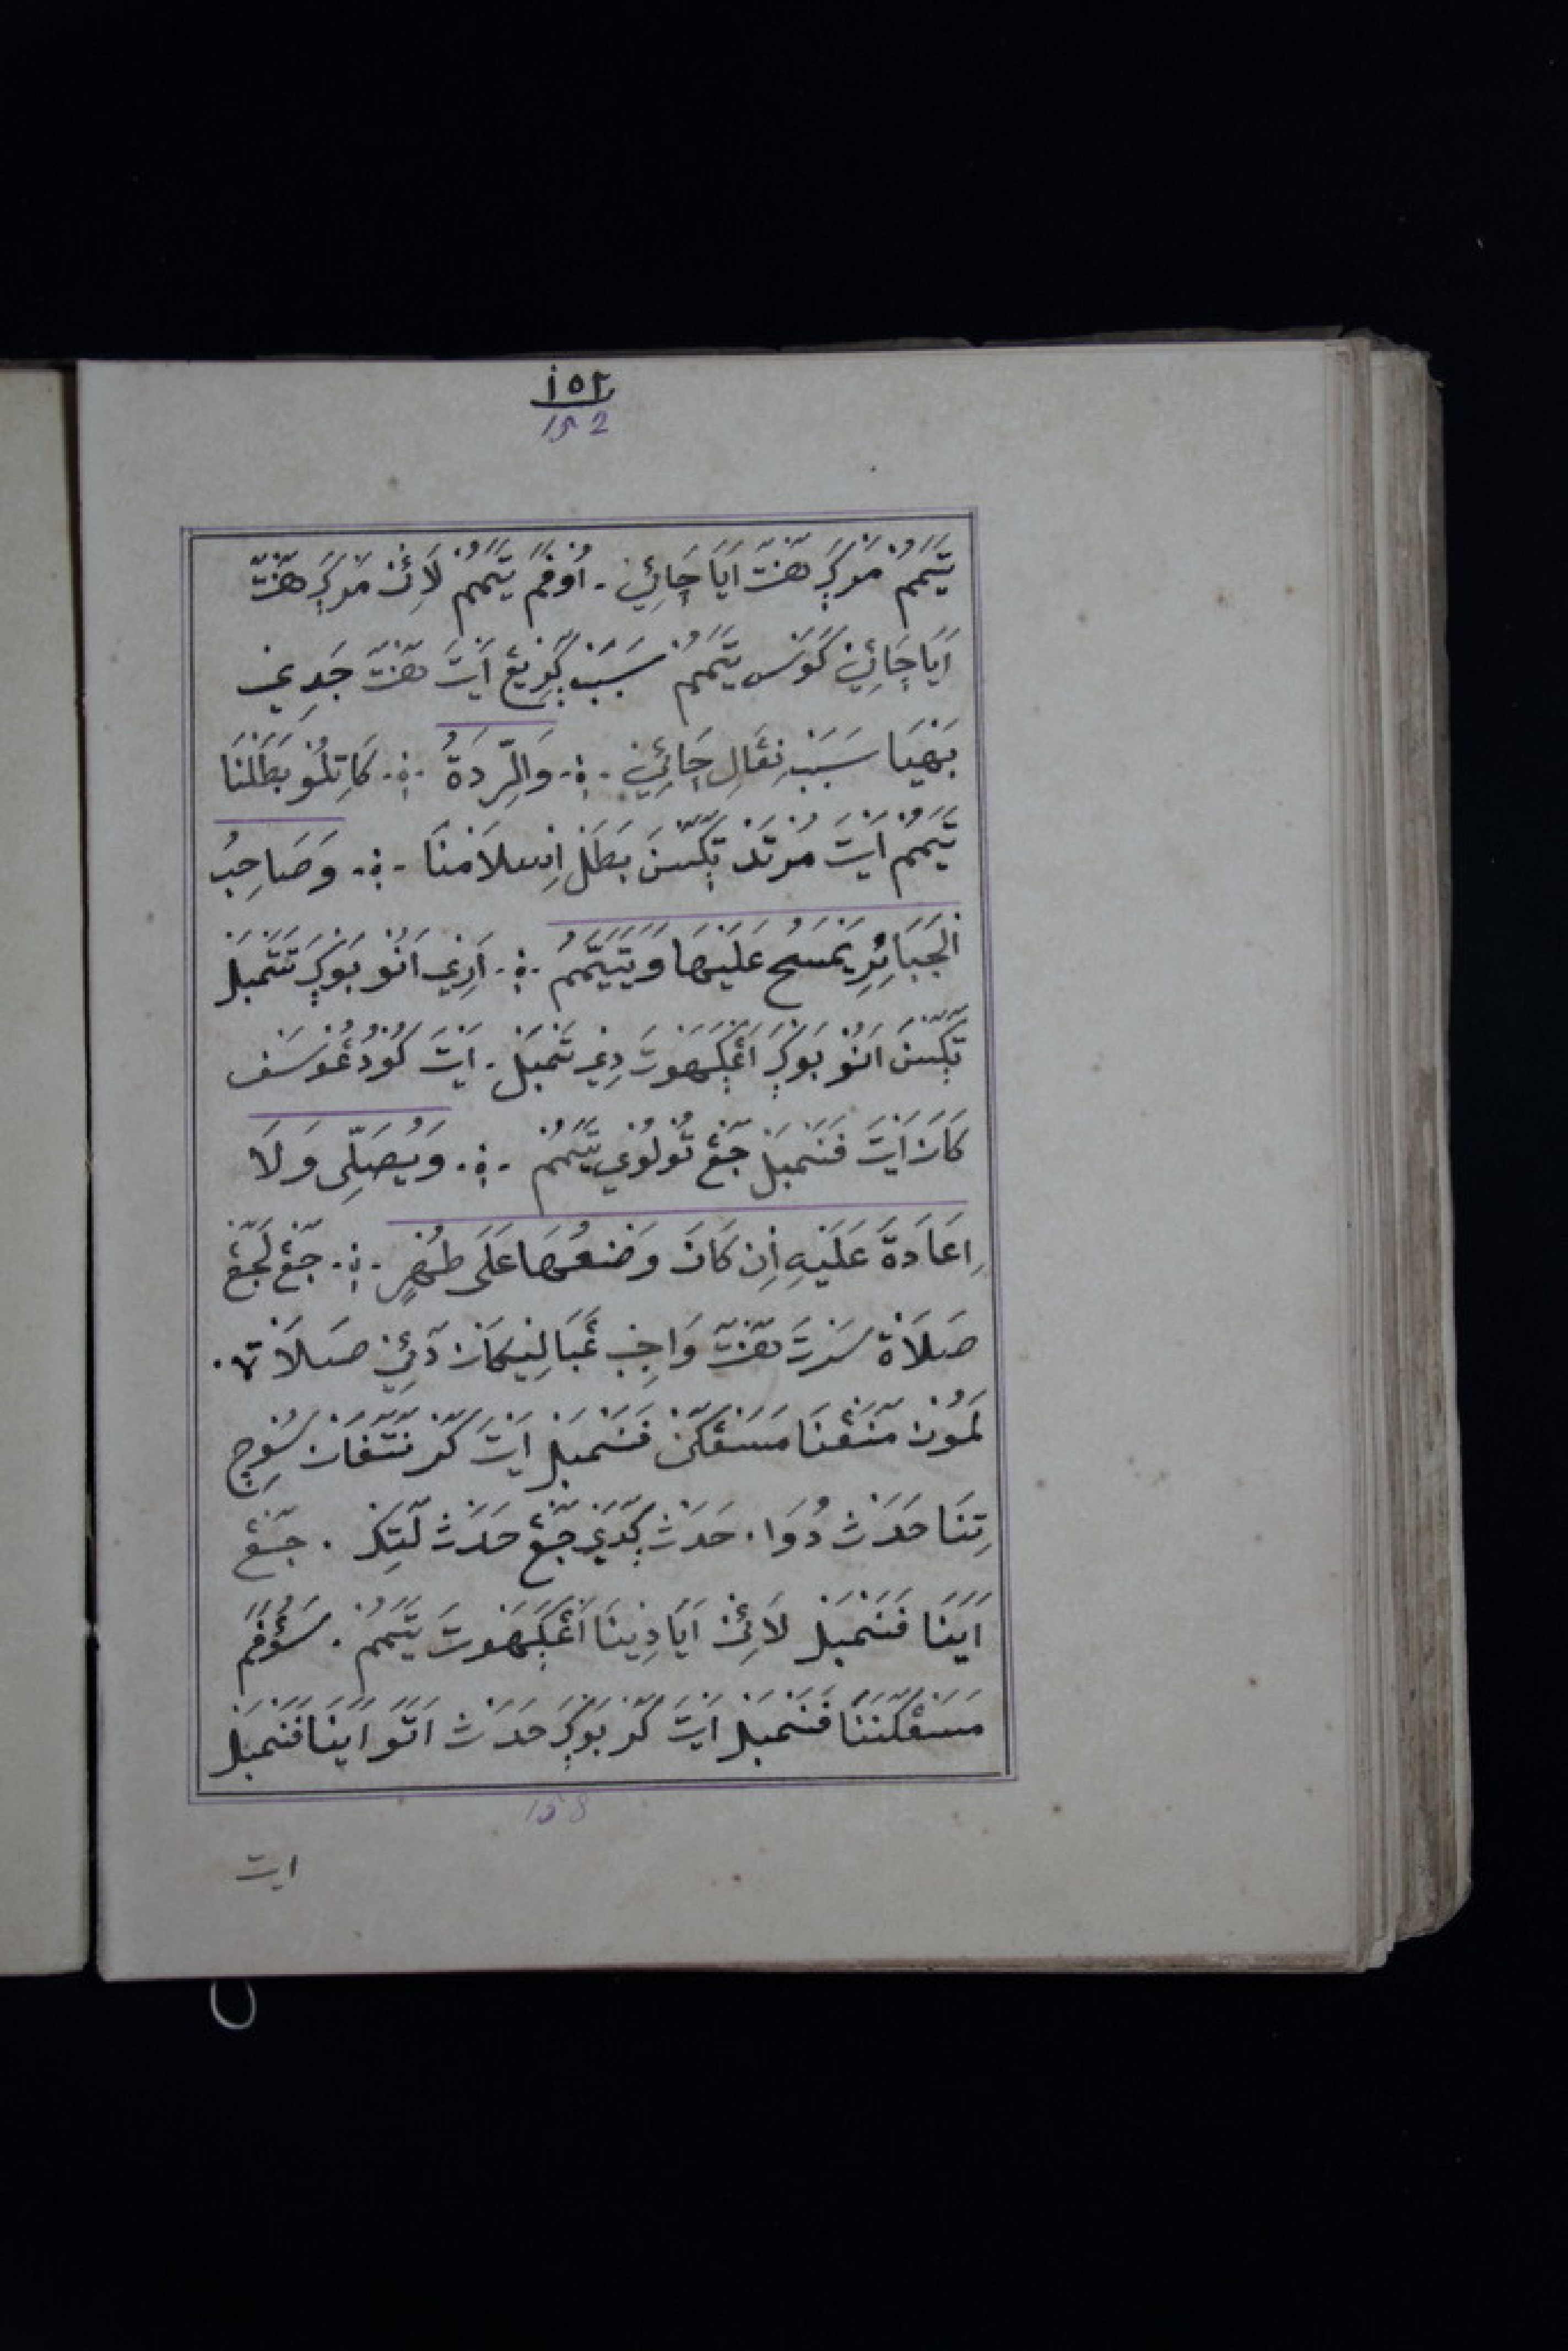 ١٥٢
152
تَيَمُّمْ مَوَكَرَ هَنْتَ اَيَا چَائِنْ . اُوفَمَ تَيَمُّمْ لَائِنْ مَوَكَرَ هَنْتَ
اَيَا چَائِنْ كَوَسَ تَيَمُّمْ سَبَبْ كَرِيغْ اَيْتَ هَنْتَ جَدِي
بَهْيَا سَبَبْ نِڠَالِ چَائِنْ . وَالرِّدَةُ . كَاتِلُو بَطَلْنَا
تَيَمُّمْ اَيْتَ مُرْتَدْ تَكَسَنَ بَطَلْ اِسْلَامْنَا . وَصَاحِبُ
الْجَبَائِرِ يَمْسَحُ عَلَيْهَا وَيَتَيَمَّمُ . اَرِي اَنُو بَوَكَرَ تَتَمْبَلْ
تَكَسَنَ اَنُو بَوَكَرَ اَڠْكَهَوتَ دِي تَمْبَلْ . اَيْتَ كُودُ ڠُوسَفْ
كَانْ اَيْتَ فَنَمْبَلْ جَڠْ نُولُوي تَيَمُّمْ . وَيُصَلِّى وَلَا
اِعَادَةَ عَلَيْهِ اِنْ كَانَ وَضْعُهَا عَلَى طُهْرٍ . جَڠْ لَجَڠْ
صَلَاةْ سَرْتَ هَنْتَ وَاجِبْ ڠَبَالِيكَانْ دَئِيْ صَلَاةْ .
لَمُونْ مَنَڠْنَا مَسَڠْكَنْ فَنَمْبَلْ اَيْتَ كَرْ نَتَفَانْ سُوچِ
تِنَا حَدَثْ دُوَا . حَدَثْ كَدَيْ جَڠْ حَدَثْ لَتِكْ . جَڠْ
اَيَنَا فَنَمْبَلْ لَائِنْ اَيَا دِينَا اَڠْكَهَوتَ تَيَمُّمْ . سَؤُفَمَ
مَسَڠْكَنَنَا فَنَمْبَلْ اَيْتَ كَرْ بَوَكَرَ حَدَثْ اَتَوْ اَيَنَا فَنَمْبَلْ
158
ايت